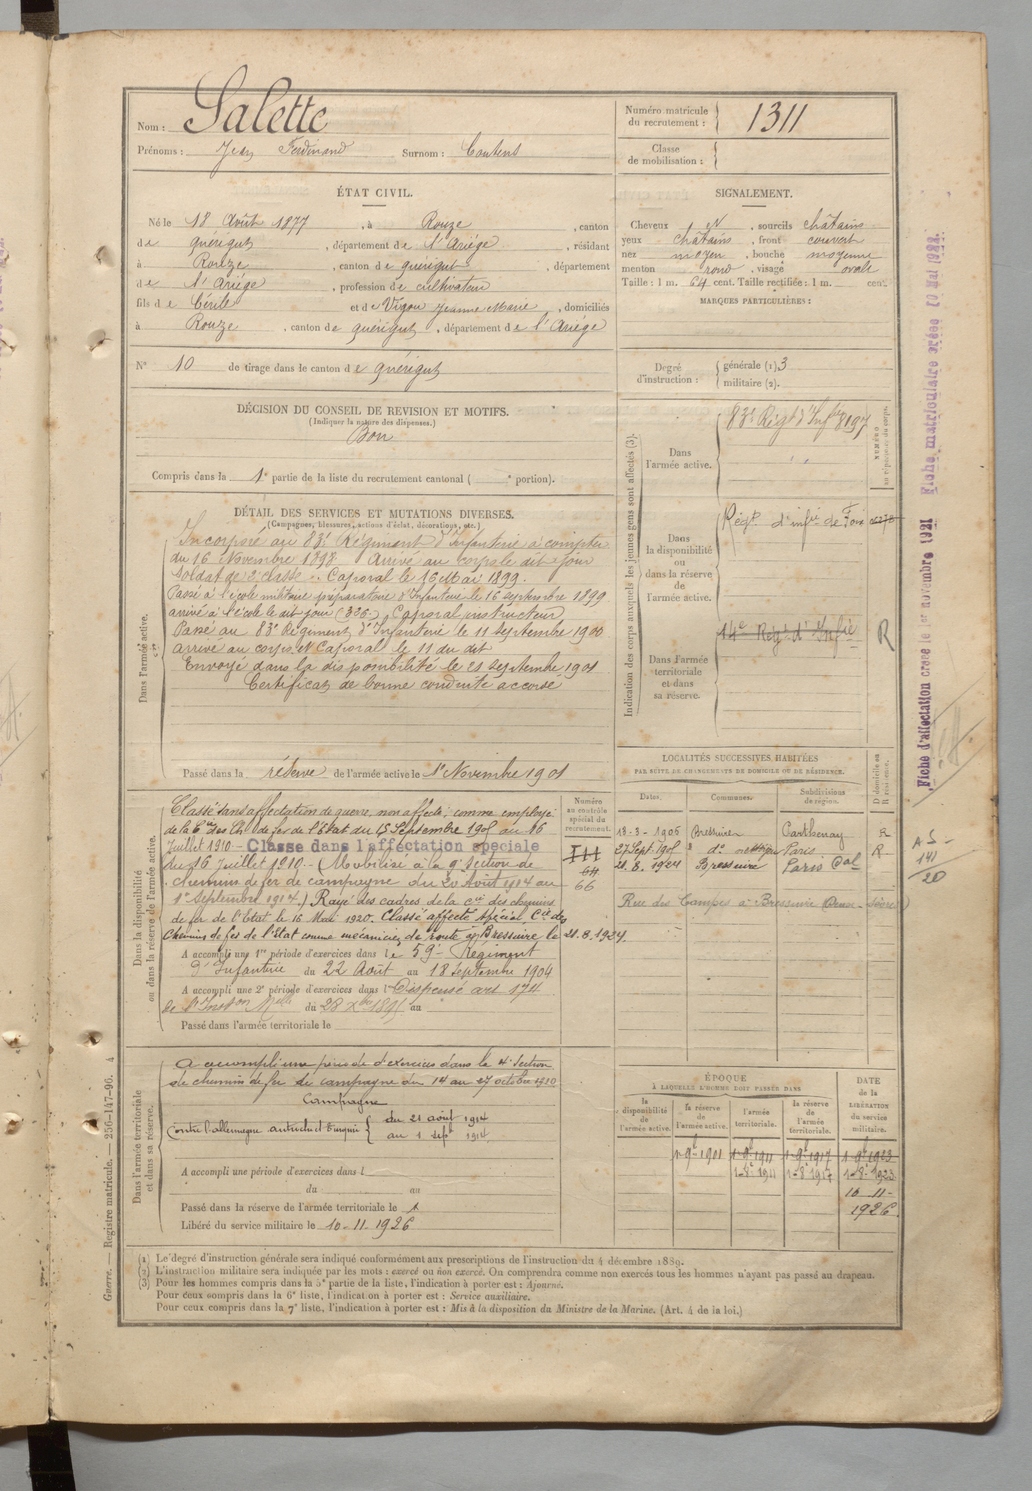 Nom : Salette
Prénoms : Jean Ferdinand Surnom : Coutens
Numéro matricule du recrutement : 1311
Classe de mobilisation :
ÉTAT CIVIL.
Né le 18 Août 1877, à Rouze, canton
de quérigut, département de l'Ariége, résidant
à Rouze, canton de quérigut, département
de l'Ariége, profession de cultivateur
fils de Cérile et de Vigou Jeanne Marie, domiciliés
à Rouze, canton de quérigut, département de l'Ariége
SIGNALEMENT.
Cheveux N, sourcils châtains
yeux châtains, front couvert
nez moyen, bouche moyenne
menton rond, visage ovale
Taille : 1 m. 64 cent. Taille rectifiée : 1 m. cent.
MARQUES PARTICULIÈRES :
N° 10 de tirage dans le canton de quérigut
Degré d'instruction : générale (1). 3
militaire (2).
DÉCISION DU CONSEIL DE REVISION ET MOTIFS.
(Indiquer la nature des dispenses.)
Bon
Compris dans la 1e partie de la liste du recrutement cantonal ( e portion).
DÉTAIL DES SERVICES ET MUTATIONS DIVERSES.
(Campagnes, blessures, actions d'éclat, décorations, etc.)
Dans l'armée active.
Incorporé au 83e Régiment d'Infanterie à compter
du 16 Novembre 1898. Arrivé au corps le dit jour
Soldat de 2e classe. Caporal le 16 Mai 1899.
Passé à l'école militaire préparatoire d'Infanterie le 16 septembre 1899
arrivé à l'école le dit jour Caporal instructeur
Passé au 83e Régiment d'Infanterie le 11 Septembre 1900
arrivé au corps et Caporal le 11 du dit
Envoyé dans la disponibilité le 21 septembre 1901
Certificat de bonne conduite accordé
Passé dans la réserve de l'armée active le 1er Novembre 1901
Indication des corps auxquels les jeunes gens sont affectés (3).
NUMÉRO au répertoire du corps.
Dans l'armée active.
83e Régt d'Infie 8197
Dans la disponibilité ou dans la réserve de l'armée active.
Régt d'infie de Foix
Dans l'armée territoriale et dans sa réserve.
14e Régt d'Infie R
LOCALITÉS SUCCESSIVES HABITÉES
PAR SUITE DE CHANGEMENTS DE DOMICILE OU DE RÉSIDENCE.
Dates. Communes. Subdivisions de région. D domicile ou R résidence.
18-3-1906 Bressuire Parthenay R
27 Sept. 1908 do Paris R
21.8.1924 Bressuire Paris
Rue des Campes à Bressuire (Deux-Sèvres)
Dans la disponibilité ou dans la réserve de l'armée active.
Numéro au contrôle spécial du recrutement.
Classé sans affectation de guerre, non affecté, comme employé
de la Cie des Ch. de fer de l'Etat du 15 Septembre 1908 au 16
Juillet 1910 - Classé dans l'affectation spéciale
du 16 Juillet 1910 - (Mobilisé à la 9e Section de
chemins de fer de campagne du 20 Août 1914 au
1er Septembre 1914.) Rayé des cadres de la Cie des chemins
de fer de l'Etat le 16 Mai 1920. Classé affecté spécial, Cie des
Chemins de fer de l'Etat comme mécanicien de route à Bressuire le 21.8.1924.
64
66
A accompli une 1re période d'exercices dans le 59e Régiment
d'Infanterie du 22 Août au 18 Septembre 1904
A accompli une 2e période d'exercices dans l Dispensé art 174
du 28 Xbre 1895 au
Passé dans l'armée territoriale le
Dans l'armée territoriale et dans sa réserve.
A accompli une période d'exercices dans la 4e Section
de chemins de fer de campagne du 14 au 27 octobre 1910
Campagne
Contre l'allemagne du 21 août 1914
au 1 sept 1914
A accompli une période d'exercices dans l
du au
Passé dans la réserve de l'armée territoriale le
Libéré du service militaire le 10-11-1926
ÉPOQUE
À LAQUELLE L'HOMME DOIT PASSER DANS
DATE de la LIBÉRATION du service militaire.
la disponibilité de l'armée active. la réserve de l'armée active. l'armée territoriale. la réserve de l'armée territoriale.
1-9e-1901 1-9e 1911 1-9e 1917 1-9e 1923
1-8e-1911 1-8e 1917 1-8e-1923
10-11-
1926
(1) Le degré d'instruction générale sera indiqué conformément aux prescriptions de l'instruction du 4 décembre 1889.
(2) L'instruction militaire sera indiquée par les mots : exercé ou non exercé. On comprendra comme non exercés tous les hommes n'ayant pas passé au drapeau.
(3) Pour les hommes compris dans la 5e partie de la liste, l'indication à porter est : Ajourné.
Pour ceux compris dans la 6e liste, l'indication à porter est : Service auxiliaire.
Pour ceux compris dans la 7e liste, l'indication à porter est : Mis à la disposition du Ministre de la Marine. (Art. 4 de la loi.)
Guerre. — Registre matricule. — 256-147-96. 4
Fiche d'affectation créée le 1er novembre 1921
Fiche matriculaire créée 10 Mai 1922.
A S -
141
20